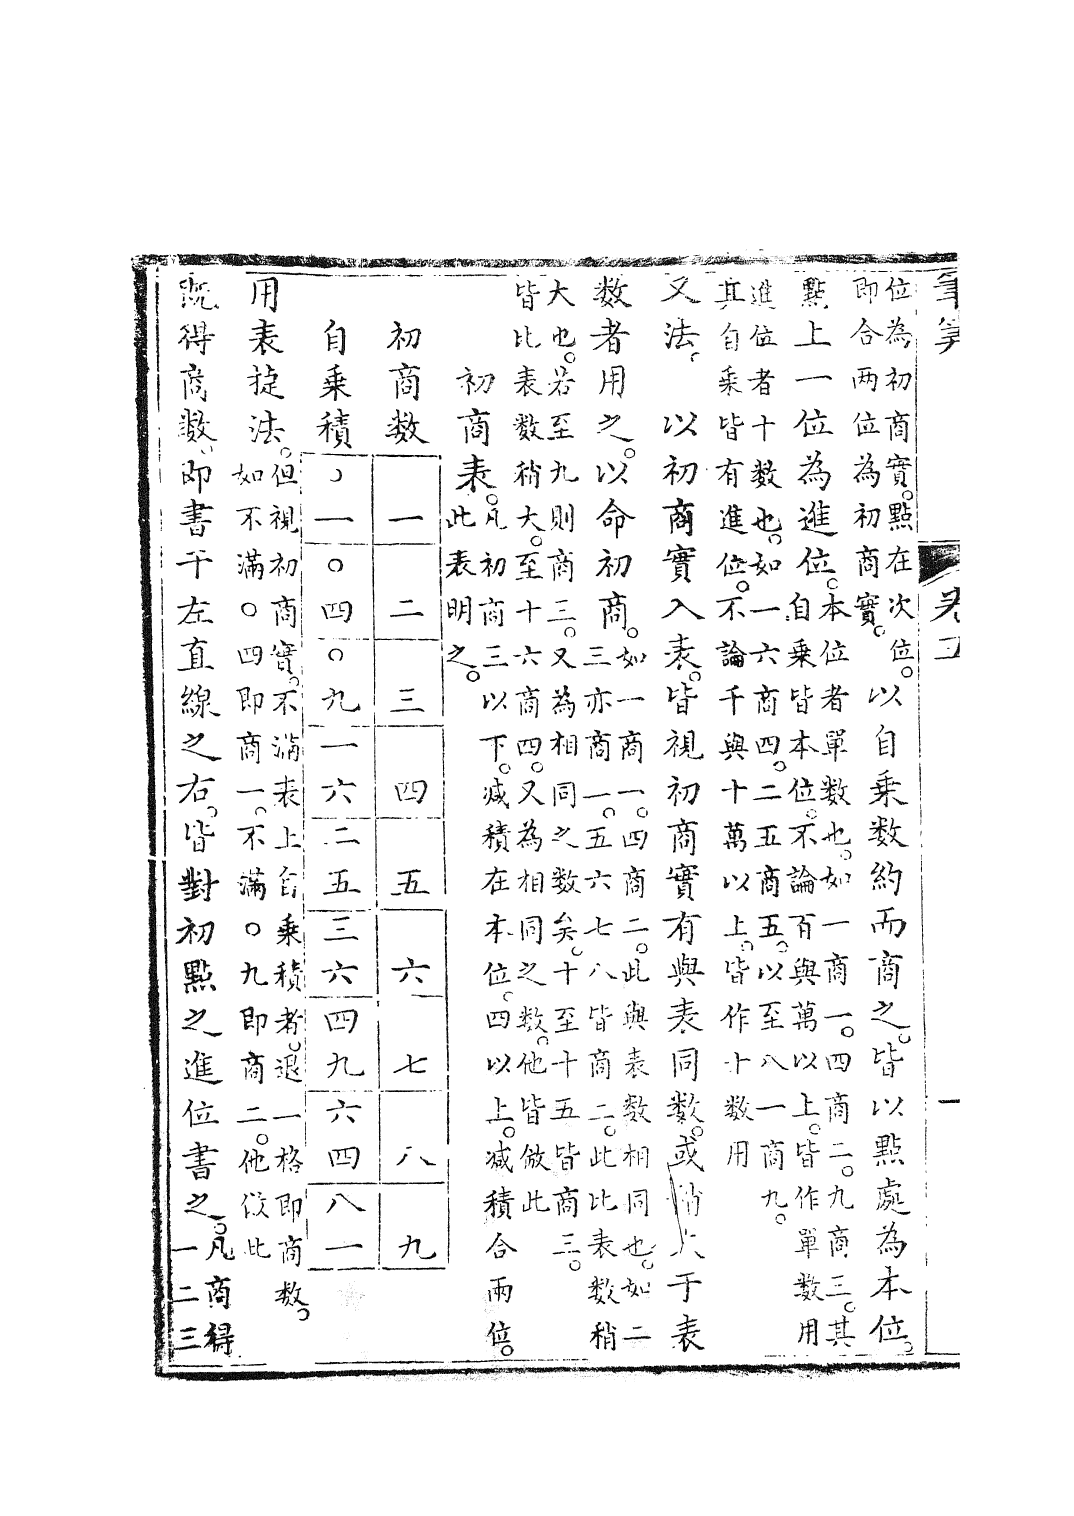 筆筭
卷
一
位為初商實。點在次位。
即合两位為初商實。
以自乗数約而商之。皆以點處為本位。
點上一位為進位。
本位者單数也。如一商一。四商二。九商三。其
自乗皆本位。不論百與萬以上。皆作單数用
進位者十数也。如一六商四。二五商五。以至八一商九。
其自乗皆有進位。不論千與十萬以上。皆作十数用
又法。以初商實入表。皆視初商實有與表同数。或稍大于表
数者用之。以命初商。
如一商一。四商二。此與表数相同也。如二
三亦商一。五六七八皆商二。此比表数稍
大也。若至九則商三。又為相同之数矣。十至十五皆商三。
皆比表数稍大。至十六商四。又為相同之数。他皆倣此
初商表。
凡初商三以下。减積在本位。四以上。减積合兩位。
此表明之。
初商数 一 二 三 四 五 六 七 八 九
自乗積 〇一 〇四 〇九 一六 二五 三六 四九 六四 八一
用表捷法。
但視初商實。不滿表上自乗積者。退一格即商数。
如不滿〇四即商一。不滿〇九即商二。他倣此
既得商数。即書于左直線之右。皆對初點之進位書之。
凡商得
一二三